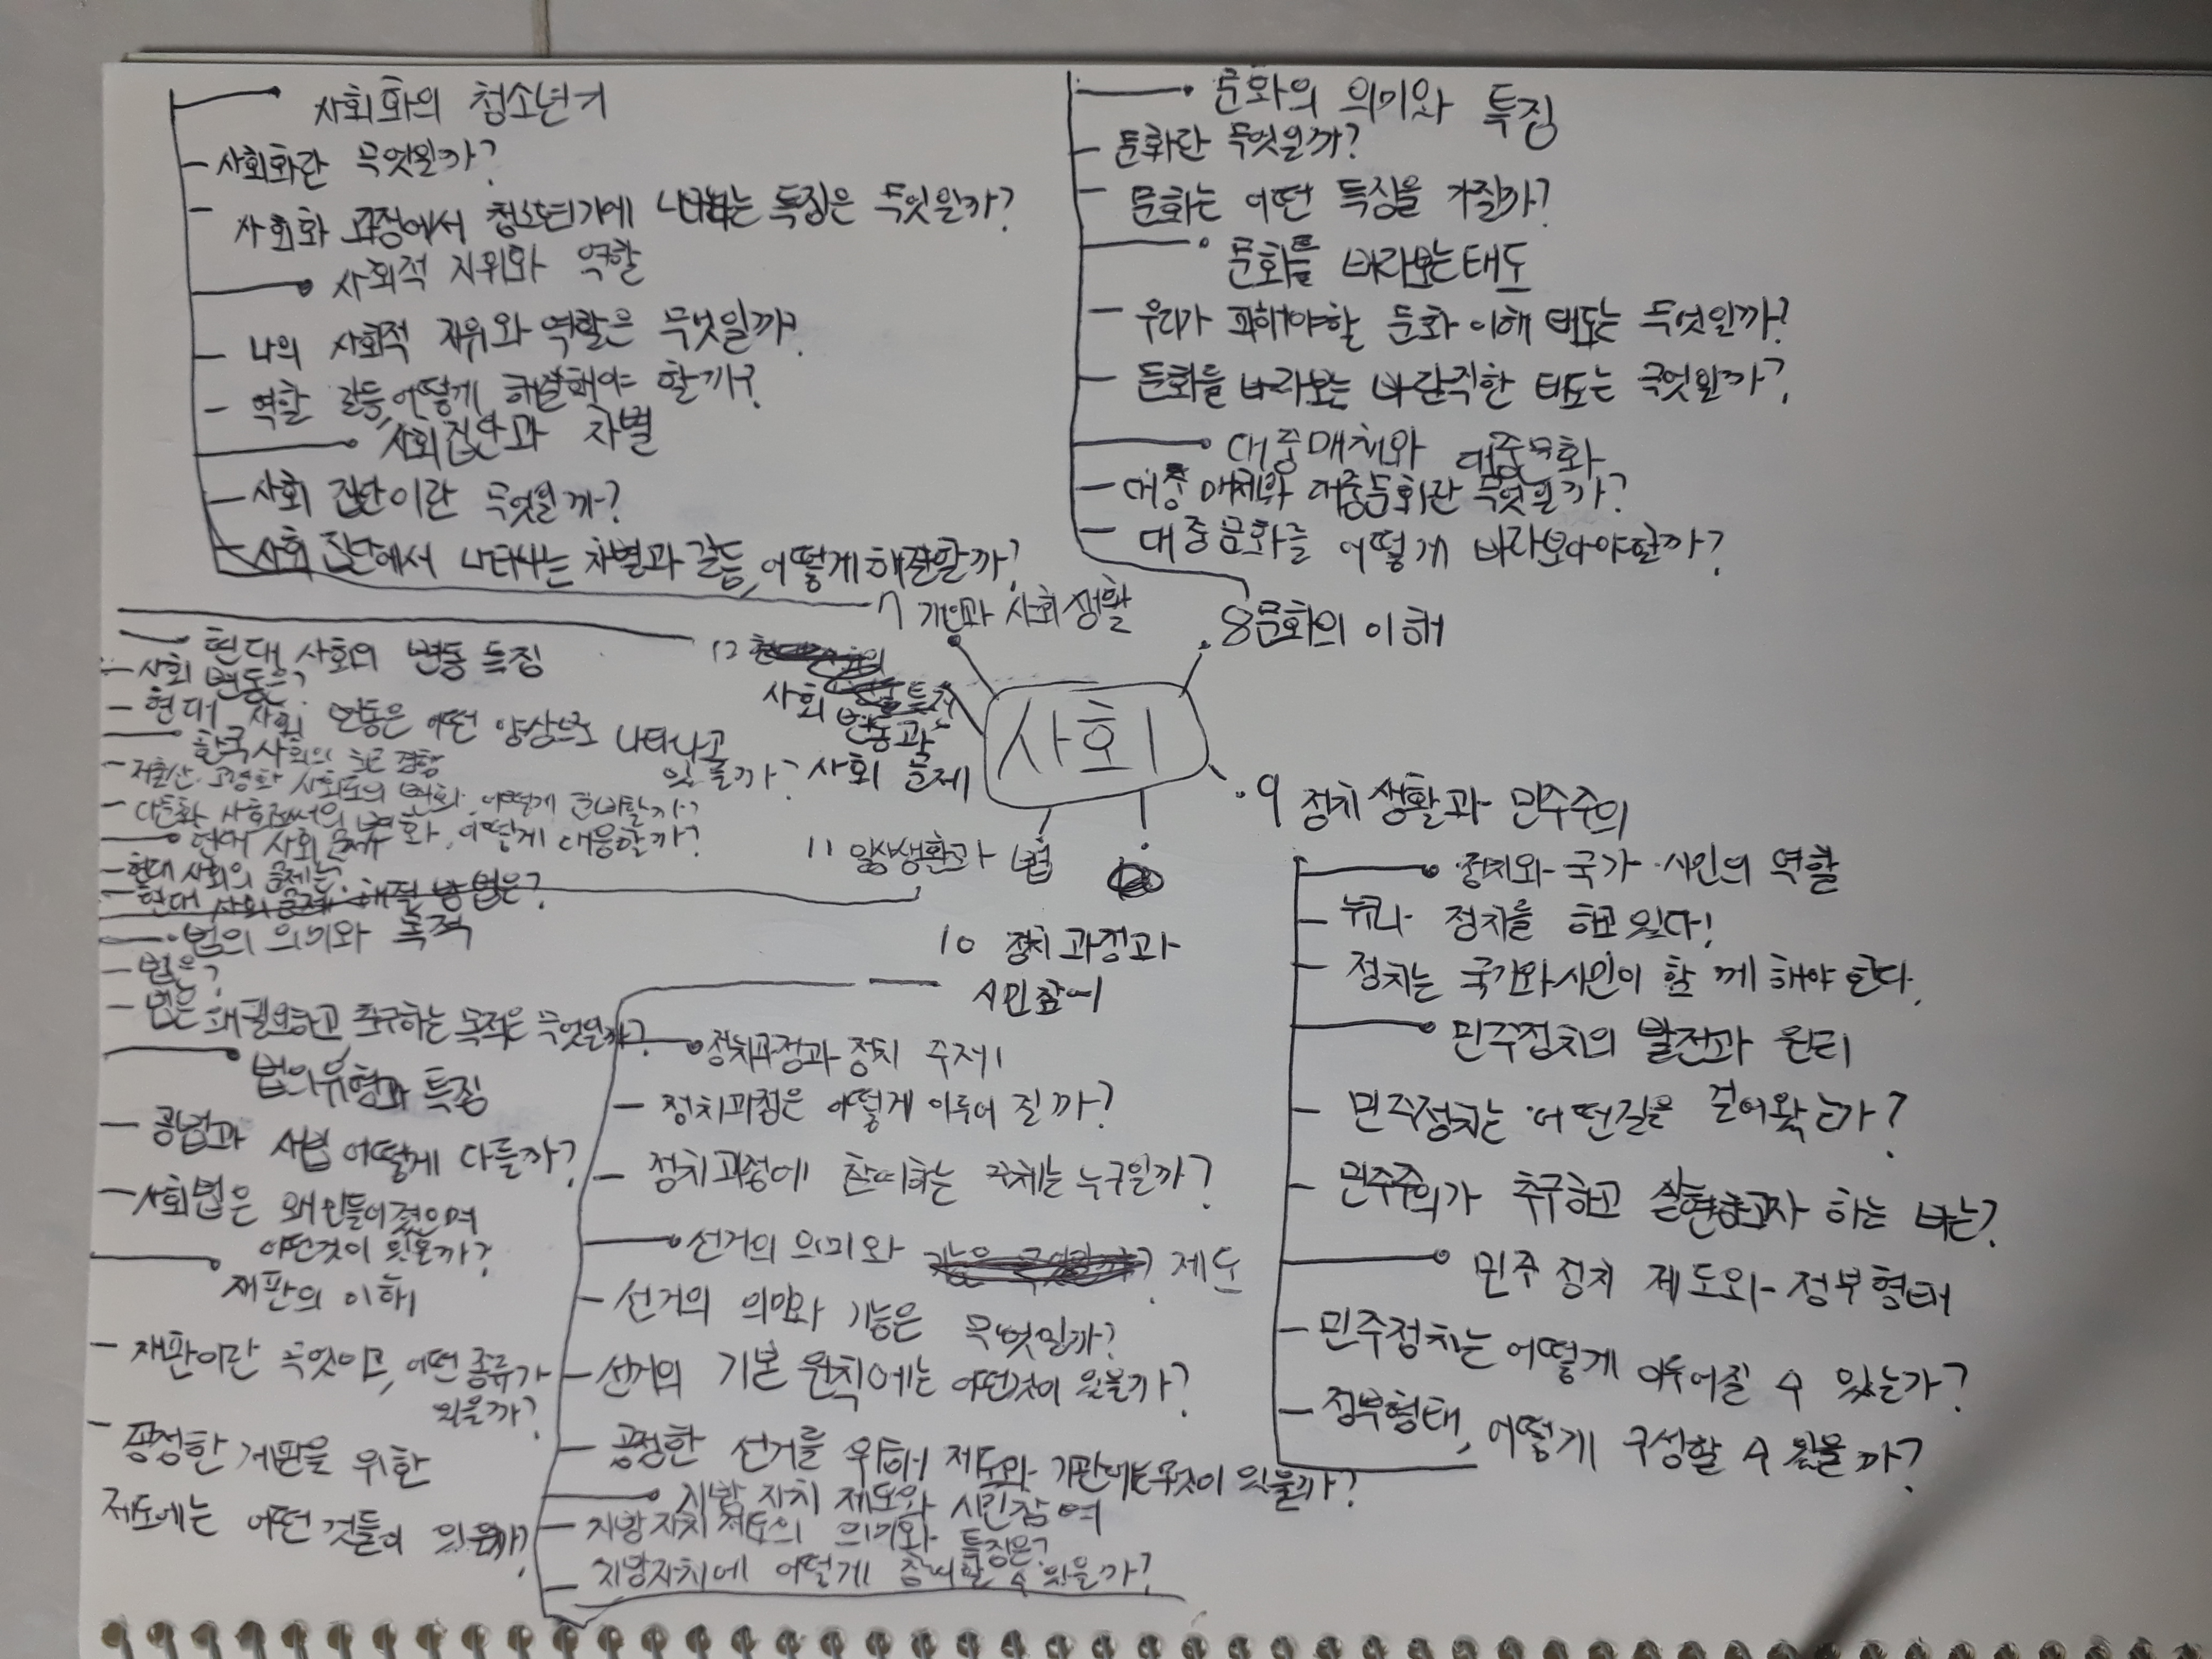 사회화의 청소년기
사회화란 무엇일까?
사회화 과정에서 청소년기에 나타나는 특징은 무엇일까?
사회적 지위와 역할
나의 사회적 지위와 역할은 무엇일까?
역할 갈등, 어떻게 해결해야 할까?
사회집단과 차별
사회 집단이란 무엇일까?
사회 집단에서 나타나는 차별과 갈등, 어떻게 해결할까?
7 개인과 사회생활
문화의 의미와 특징
문화란 무엇일까?
문화는 어떤 특징을 가질까?
문화를 바라보는 태도
우리가 피해야할 문화 이해 태도는 무엇일까?
문화를 바라보는 바람직한 태도는 무엇일까?
대중매체와 대중문화
대중 매체와 대중문화란 무엇일까?
대중문화를 어떻게 바라보아야할까?
8 문화의 이해
사회
12
사회 변동과
사회 문제
현대 사회의 변동 특징
사회 변동은?
현대 사회 변동은 어떤 양상으로 나타나고
있을까?
한국 사회의 최근 경향
저출산·고령화 사회로의 변화, 어떻게 준비할까?
다문화 사회로서의 변화, 어떻게 대응할까?
현대 사회 문제
현대 사회의 문제는?
현대 사회 문제 해결 방법은?
11 일상생활과 법
법의 의미와 목적
법은?
법은 왜 필요하고 추구하는 목적은 무엇일까?
법의 유형과 특징
공법과 사법 어떻게 다를까?
사회법은 왜 만들어졌으며
어떤것이 있을까?
재판의 이해
재판이란 무엇이고, 어떤 종류가
있을까?
공정한 재판을 위한
제도에는 어떤 것들이 있을까?
10 정치 과정과
시민참여
정치과정과 정치 주체
정치과정은 어떻게 이루어 질까?
정치과정에 참여하는 주체는 누구일까?
선거의 의미와 제도
선거의 의미와 기능은 무엇일까?
선거의 기본 원칙에는 어떤것이 있을까?
공정한 선거를 위해 제도와 기관에는 무엇이 있을까?
지방 자치 제도와 시민참여
지방 자치 제도의 의미와 특징은?
지방자치에 어떻게 참여할 수 있을까?
9 정치 생활과 민주주의
정치와 국가·시민의 역할
누구나 정치를 하고 있다!
정치는 국가와 시민이 함께 해야 한다.
민주정치의 발전과 원리
민주정치는 어떤길을 걸어왔는가?
민주주의가 추구하고 실현하고자 하는 바는?
민주 정치 제도와 정부형태
민주정치는 어떻게 이루어질 수 있는가?
정부형태, 어떻게 구성할 수 있을까?